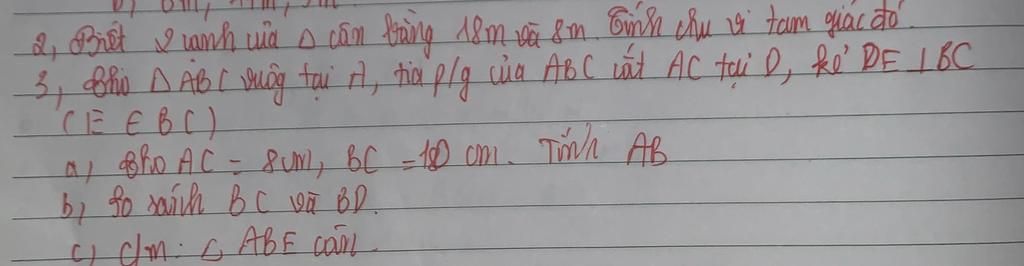 2, Biết 2 cạnh của Δ cân bằng 18m và 8m. Tính chu vi tam giác đó.
3, Cho Δ ABC vuông tại A, tia p/g của ABC cắt AC tại D, kẻ DE ⊥ BC
(E ∈ BC)
a, Cho AC = 8cm, BC = 10 cm. Tính AB
b, So sánh BC và BD.
c, c/m: Δ ABE cân.